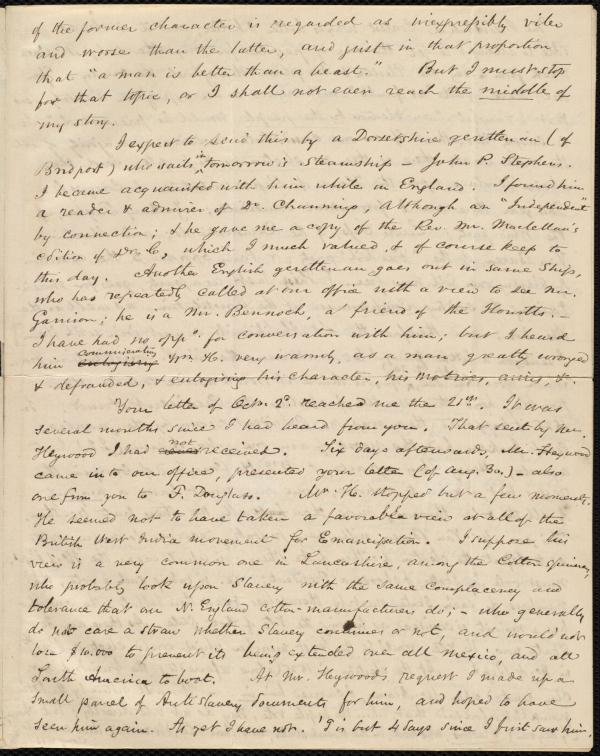 of the former character is regarded as inexpressibly viler
and worse than the latter, and just in that proportion
that "a man is better than a beast." But I must stop
for that topic, or I shall not even reach the middle of
my story.
I expect to send this by a Dorsetshire gentleman (of
Bridport) who sails in tomorrow's Steamship – John P. Stephens.
I became acquainted with him while in England. I found him
a reader & admirer of Dr. Channing, although an "Independent"
by connection; & he gave me a copy of the Rev. Mr. Maclellan's
edition of Dr. C, which I much valued, & of course keep to
this day. Another English gentleman goes out in same Ship,
who has repeatedly called at our office with a view to see Mr.
Garrison; he is a Mr. Bennoch, a friend of the Howitts. –
I have had no oppy. for conversation with him; but I heard
him communicating Wm. H. very warmly, as a man greatly wronged
& defrauded, & eulogising his character, his motives, aims, &.
Your letter of Octr. 2d. reached me the 21st. It was
several months since I had heard from you. That sent by Mr.
Heywood I had not received. Six days afterwards, Mr. Heywood
came into our office, presented your letter (of Aug. 30.) – also
one from you to F. Douglass. Mr. H. stopped but a few moments.
He seemed not to have taken a favorable view at all of the
British West India movement for Emancipation. I suppose his
view is a very common one in Lancashire, among the Cotton Spinners,
who probably look upon Slavery with the same complacency and
tolerance that our N. England cotton-manufacturers do; – who generally
do not care a straw whether Slavery continues or not, and would not
lose $10.000 to prevent its being extended over all Mexico, and all
South America to boot. At Mr. Heywood's request I made up a
small parcel of Anti Slavery documents for him, and hoped to have
seen him again. As yet I have not. 'Tis but 4 days since I first saw him,